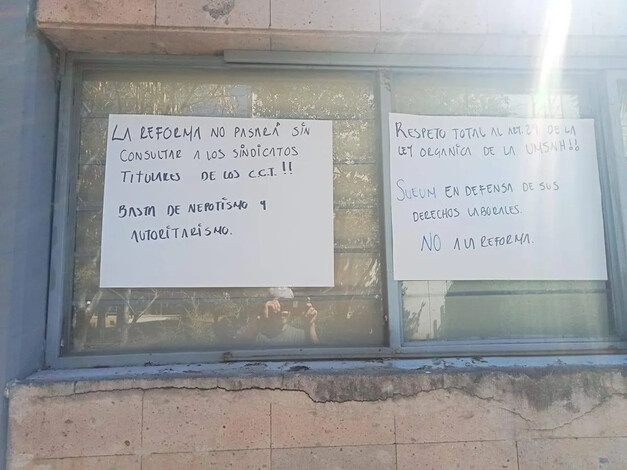 LA REFORMA NO PASARÁ SIN
CONSULTAR A LOS SINDICATOS
TITULARES DE LOS C.C.T. !!
BASTA DE NEPOTISMO Y
AUTORITARISMO.
RESPETO TOTAL AL ART. DE LA
LEY ORGANICA DE LA UMSNH!!
SUEUM EN DEFENSA DE SUS
DERECHOS LABORALES.
NO A LA REFORMA.